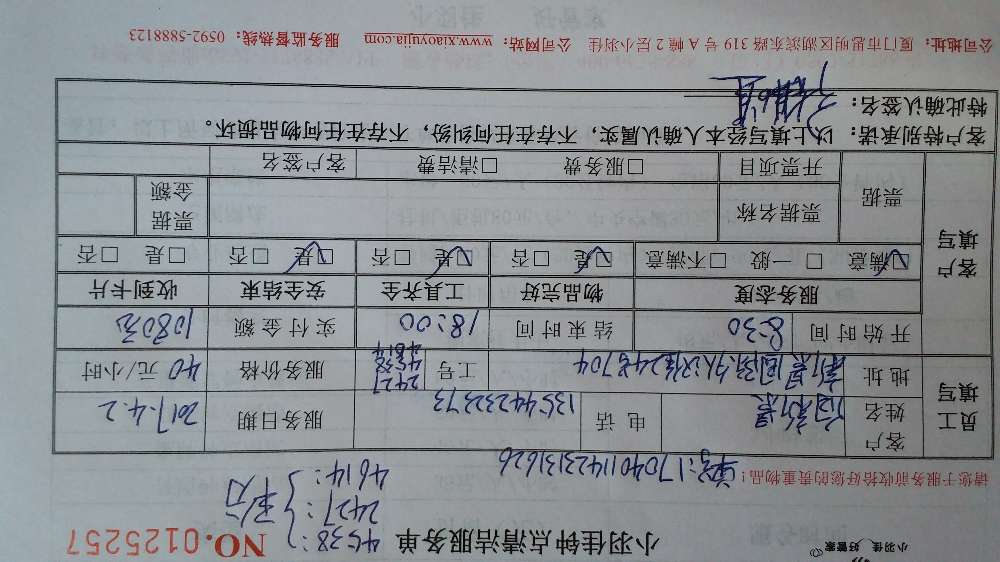 小羽佳 好管家
小羽佳钟点清洁服务单 NO.0125257
4538:
2427: 平分
4614:
请您于服务前收拾好您的贵重物品!
单号:1704011423131626
员工填写
客户姓名
电话 13544232273
服务日期 2017.4.2
地址
工号 2427 4538 4614
服务价格 40 元/小时
开始时间 8:30
结束时间 18:00
实付金额 1080元
客户填写
服务态度 物品完好 工具齐全 安全结束 收到卡片
☑满意 □一般 □不满意 ☑是 □否 ☑是 □否 ☑是 □否 □是 □否
票据 票据名称 票据金额
开票项目 □服务费 □清洁费 客户签名
客户特别承诺:以上填写经本人确认属实,不存在任何纠纷,不存在任何物品损坏。
特此确认签名:
公司地址:厦门市思明区湖滨东路 319 号 A 幢 2 层小羽佳 公司网站:www.xiaoyujia.com 服务监督热线:0592-5888123